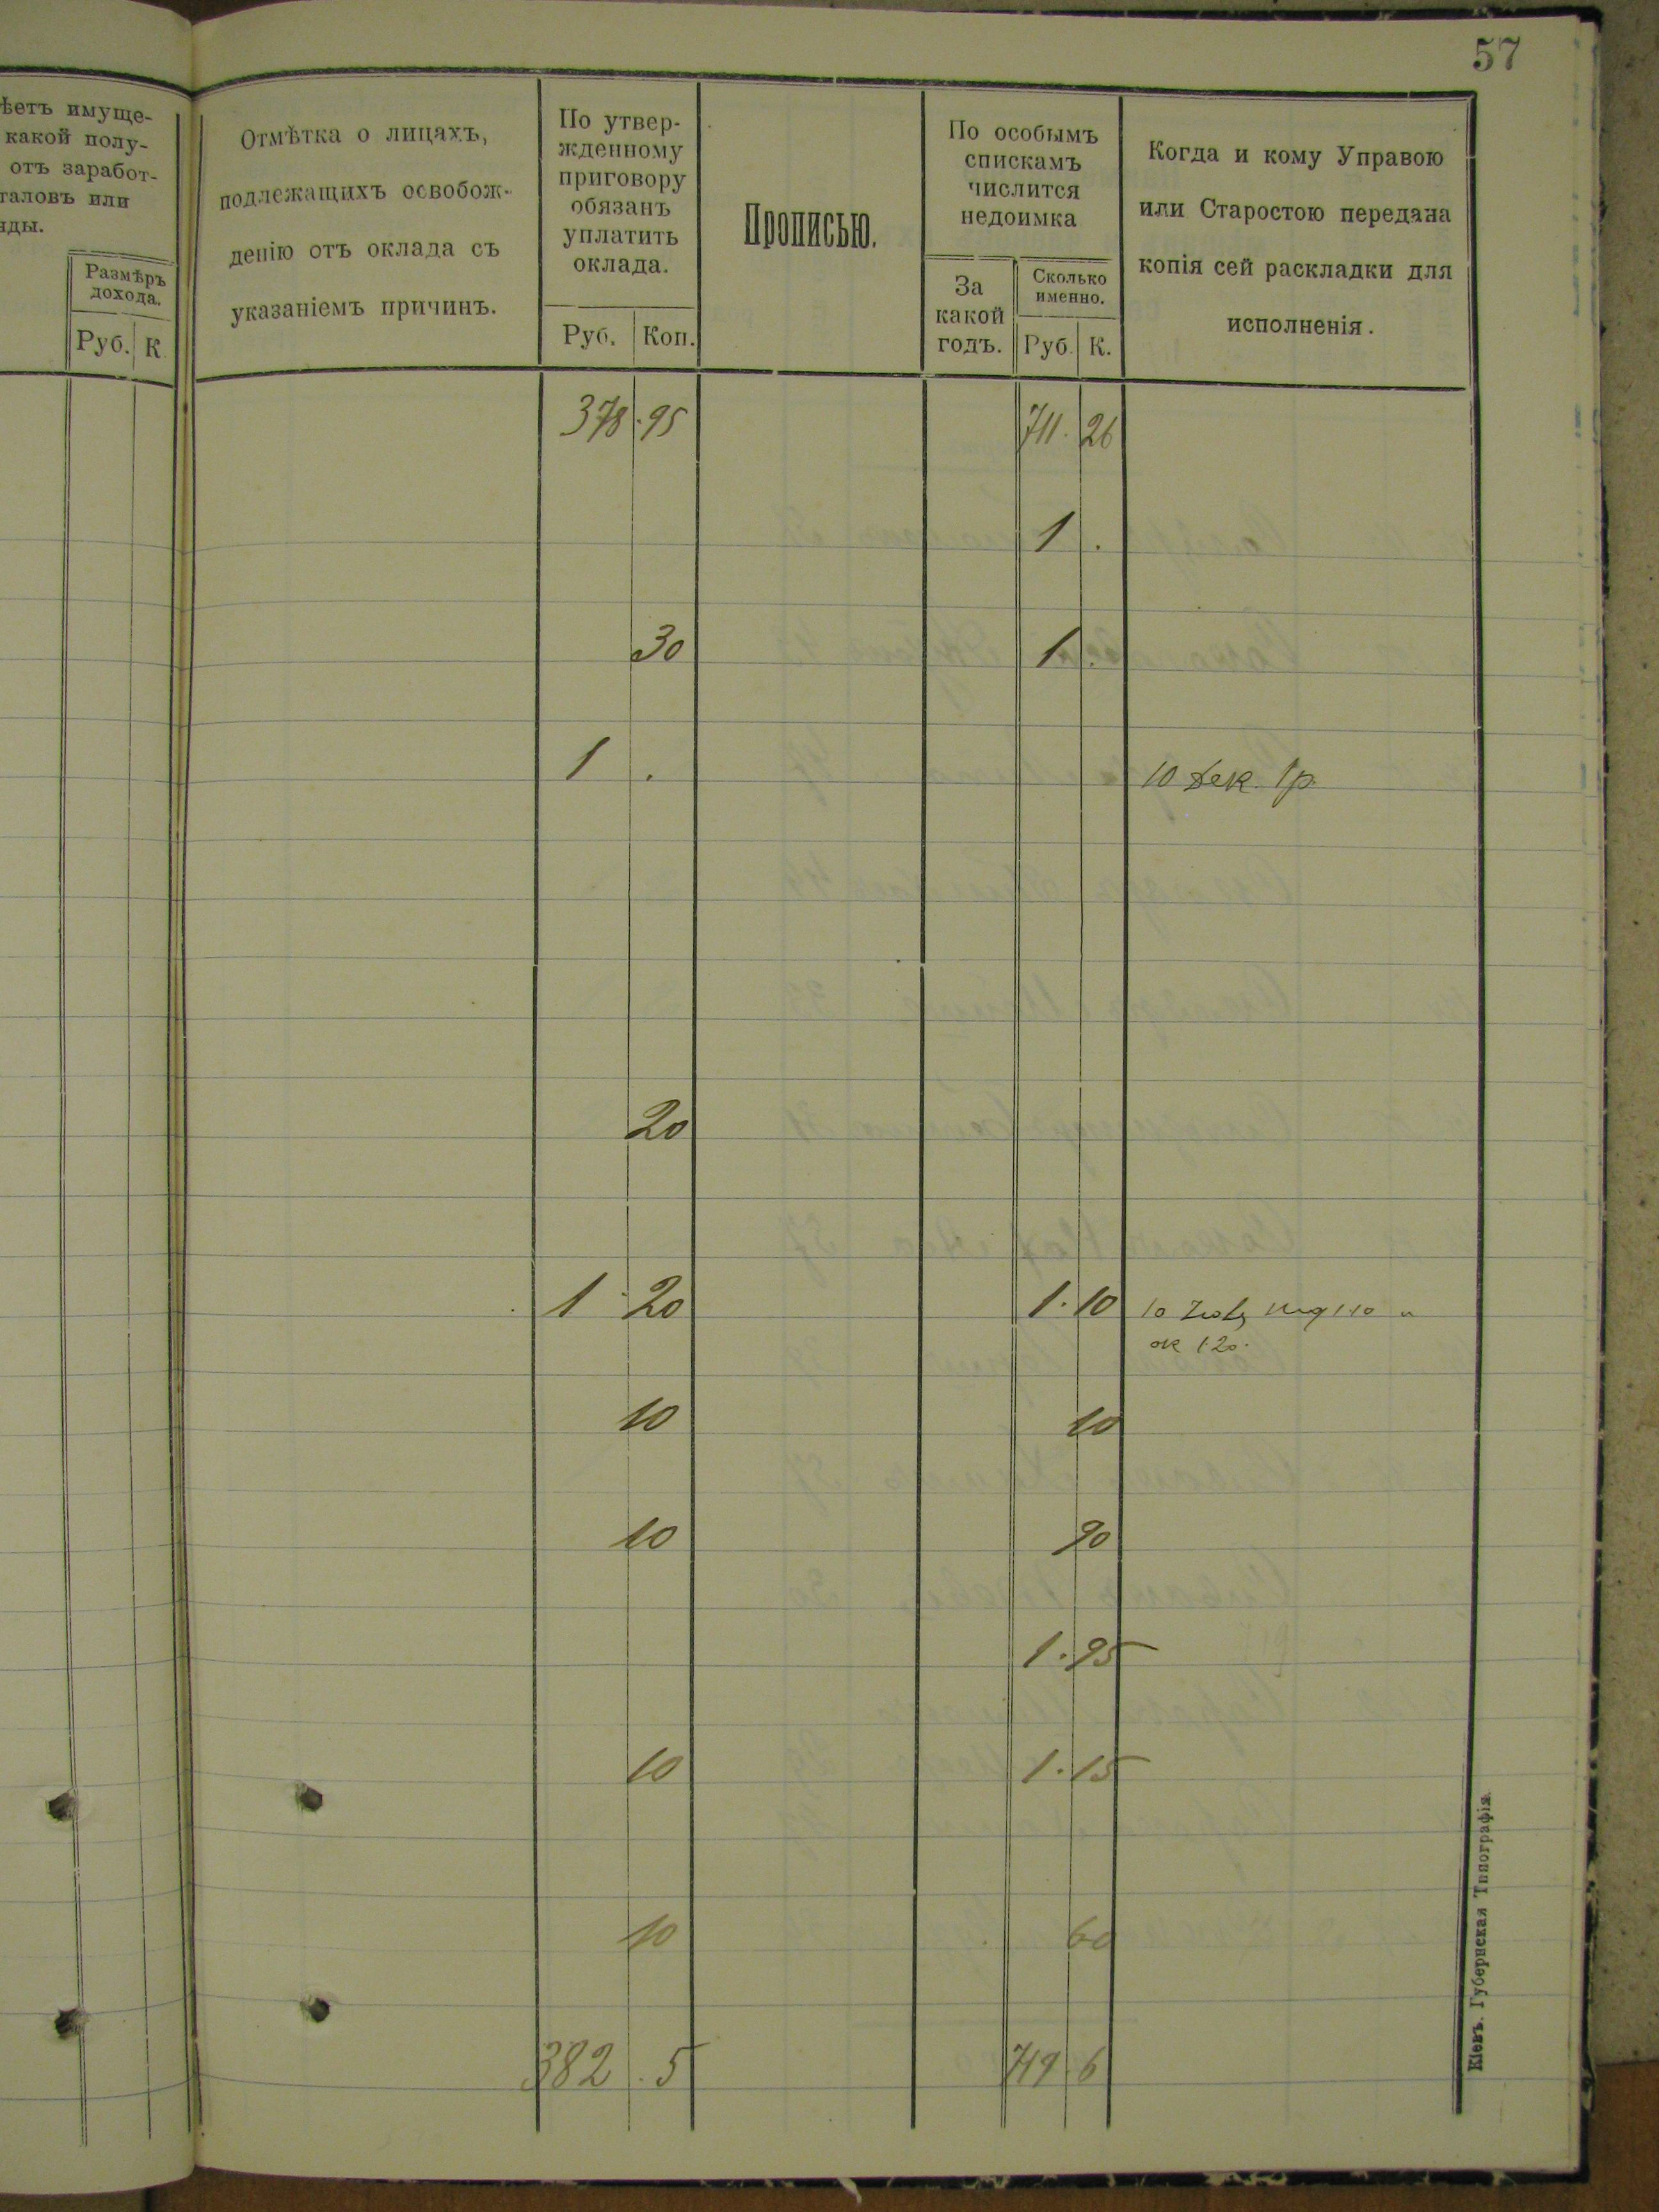 57
ѣетъ имуще-
какой полу-
отъ заработ-
таловъ или
нды.
Размѣръ
дохода.
Руб. К.
Отмѣтка о лицахъ,
подлежащихъ освобож-
денію отъ оклада съ
указаніемъ причинъ.
По утвер-
жденному
приговору
обязанъ
уплатить
оклада.
Руб. Коп.
Прописью.
По особымъ
спискамъ
числится
недоимка
За
какой
годъ.
Сколько
именно.
Руб. К.
Когда и кому Управою
или Старостою передана
копія сей раскладки для
исполненія.
378 . 95 711 . 26
1 .
30 1 .
1 . 10 Дек. 1 р.
20
1 20 1 . 10 10
ок 1.20.
10 10
10 90
1 . 95
10 1 . 15
10 60
382 . 5 719 . 6
Кіевъ. Губернская Типографія.